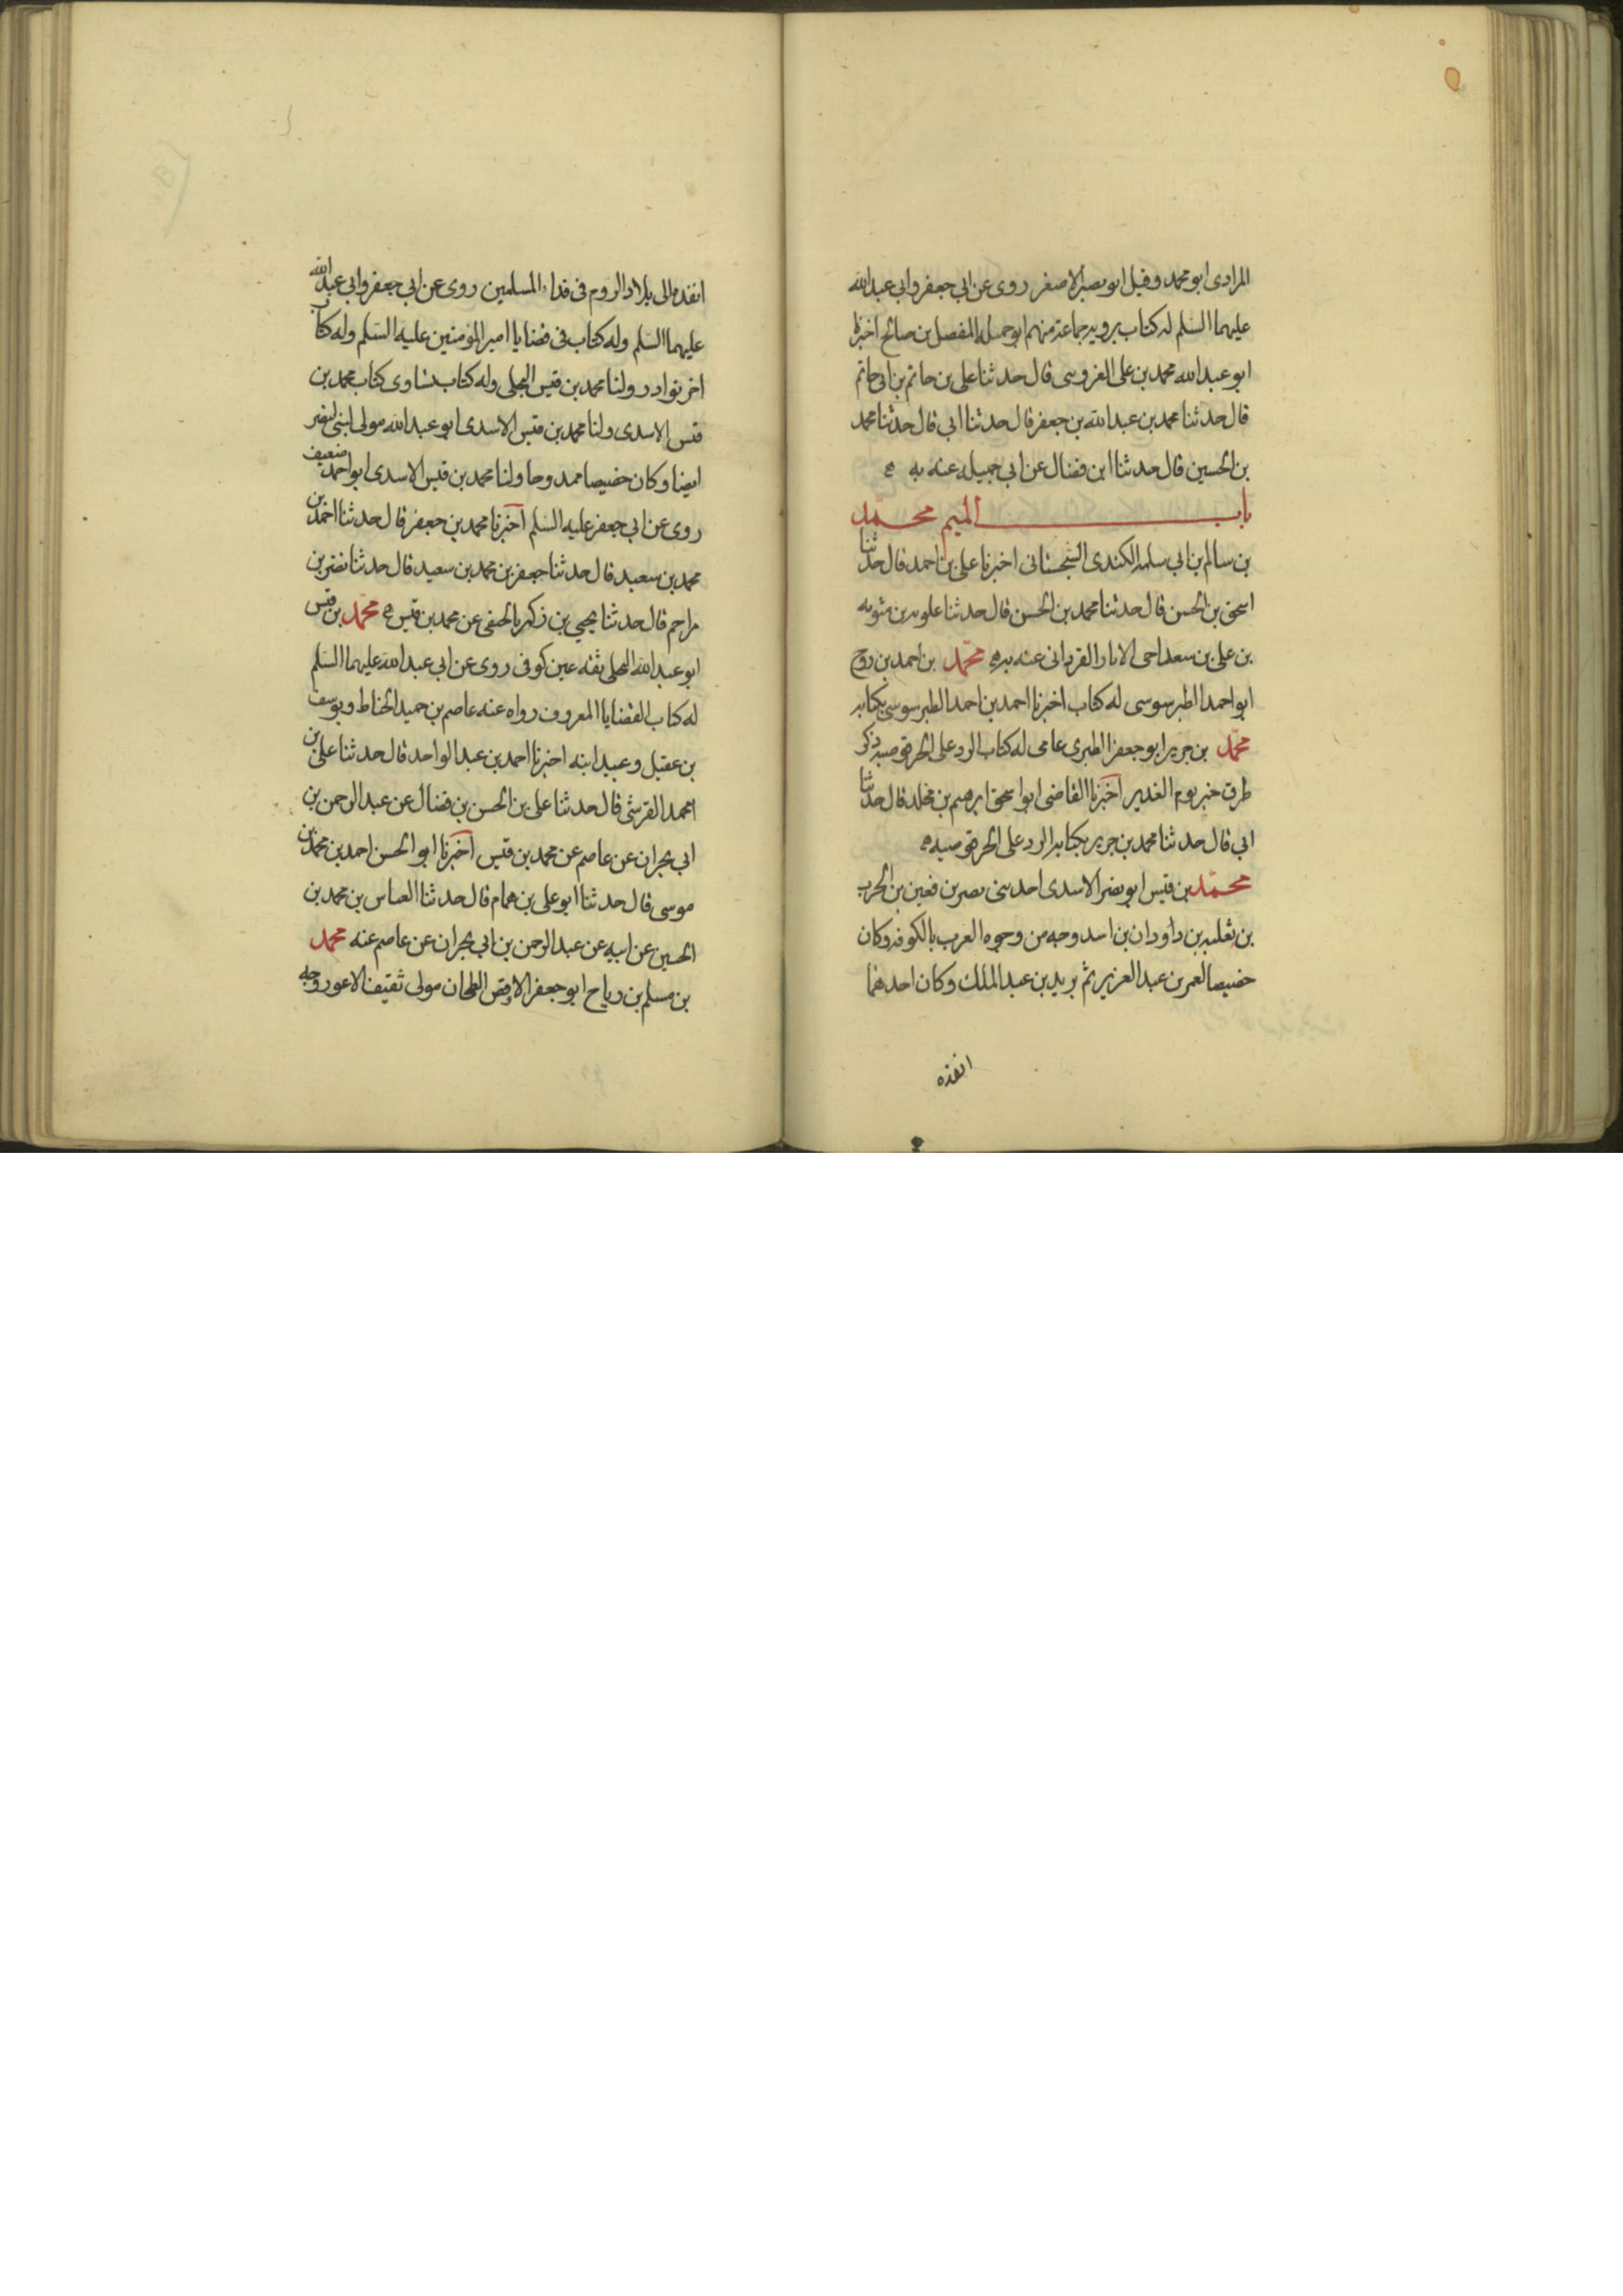 المرادى ابو محمد وقيل ابو بصير الاصغر روى عن ابى جعفر وابى عبد الله
عليهما السلم له كتاب يرويه جماعة منهم ابو جميله المفضل بن صالح اخبرنا
ابو عبد الله محمد بن على القزوينى قال حدثنا على بن حاتم بن ابى حاتم
قال حدثنا محمد بن عبد الله بن جعفر قال حدثنا ابى قال حدثنا محمد
بن الحسين قال حدثنا ابن فضال عن ابى جميله عنه به ه
باب الميم محمد
بن سالم بن ابى سلمه الكندى السجستانى اخبرنا على بن احمد قال حدثنا
اسحق بن الحسن قال حدثنا محمد بن الحسن قال حدثنا علويه بن متويه
بن على بن سعد اخى الاثار القزدانى عنه به ه محمد بن احمد بن روح
ابو احمد الطرسوسى له كتاب اخبرنا احمد بن احمد الطرسوسى بكتابه
محمد بن جرير ابو جعفر الطبرى عامى له كتاب الرد على الحرقوصيه ذكر
طرق خبر يوم الغدير اخبرنا القاضى ابو اسحق ابرهيم بن مخلد قال حدثنا
ابى قال حدثنا محمد بن جرير بكتابه الرد على الحرقوصيه ه
محمد بن قيس ابو نصر الاسدى احد بنى نصر بن قعين بن الحرب
بن ثعلبه بن داودان بن اسد وجه من وجوه العرب بالكوفه وكان
خصيصا لعمر بن عبد العزيز ثم يزيد بن عبد الملك وكان احدهما
انفذه
انفذه الى بلاد الروم فى فداء المسلمين روى عن ابى جعفر وابى عبد الله
عليهما السلم وله كتاب فى قضايا امير المؤمنين عليه السلم وله كتاب
اخر نوادر ولنا محمد بن قيس البجلى وله كتاب يساوى كتاب محمد بن
قيس الاسدى ولنا محمد بن قيس الاسدى ابو عبد الله مولى لبنى نصر
ايضا وكان خصيصا ممدوحا ولنا محمد بن قيس الاسدى ابو احمد ضعيف
روى عن ابى جعفر عليه السلم اخبرنا محمد بن جعفر قال حدثنا احمد بن
محمد بن سعيد قال حدثنا جعفر بن محمد بن سعيد قال حدثنا نصر بن
مزاحم قال حدثنا يحيى بن زكريا الحنفى عن محمد بن قيس ه محمد بن قيس
ابو عبد الله البجلى ثقه عين كوفى روى عن ابى عبد الله عليهما السلم
له كتاب القضايا المعروف رواه عنه عاصم بن حميد الحناط ويوسف
بن عقيل وعبيد ابنه اخبرنا احمد بن عبد الواحد قال حدثنا على بن
محمد القرشى قال حدثنا على بن الحسن بن فضال عن عبد الرحمن بن
ابى نجران عن عاصم عن محمد بن قيس اخبرنا ابو الحسن احمد بن محمد بن
موسى قال حدثنا ابو على بن همام قال حدثنا العباس بن محمد بن
الحسين عن ابيه عن عبد الرحمن بن ابى نجران عن عاصم عنه محمد
بن مسلم بن رياح ابو جعفر الاوقص الطحان مولى ثقيف الاعور وجه